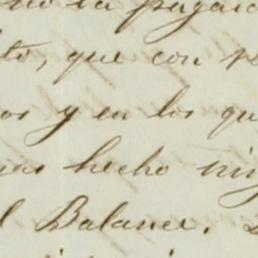 no la pagara
to, que con re
os y en los qu
mas hecho nin
l Balance.